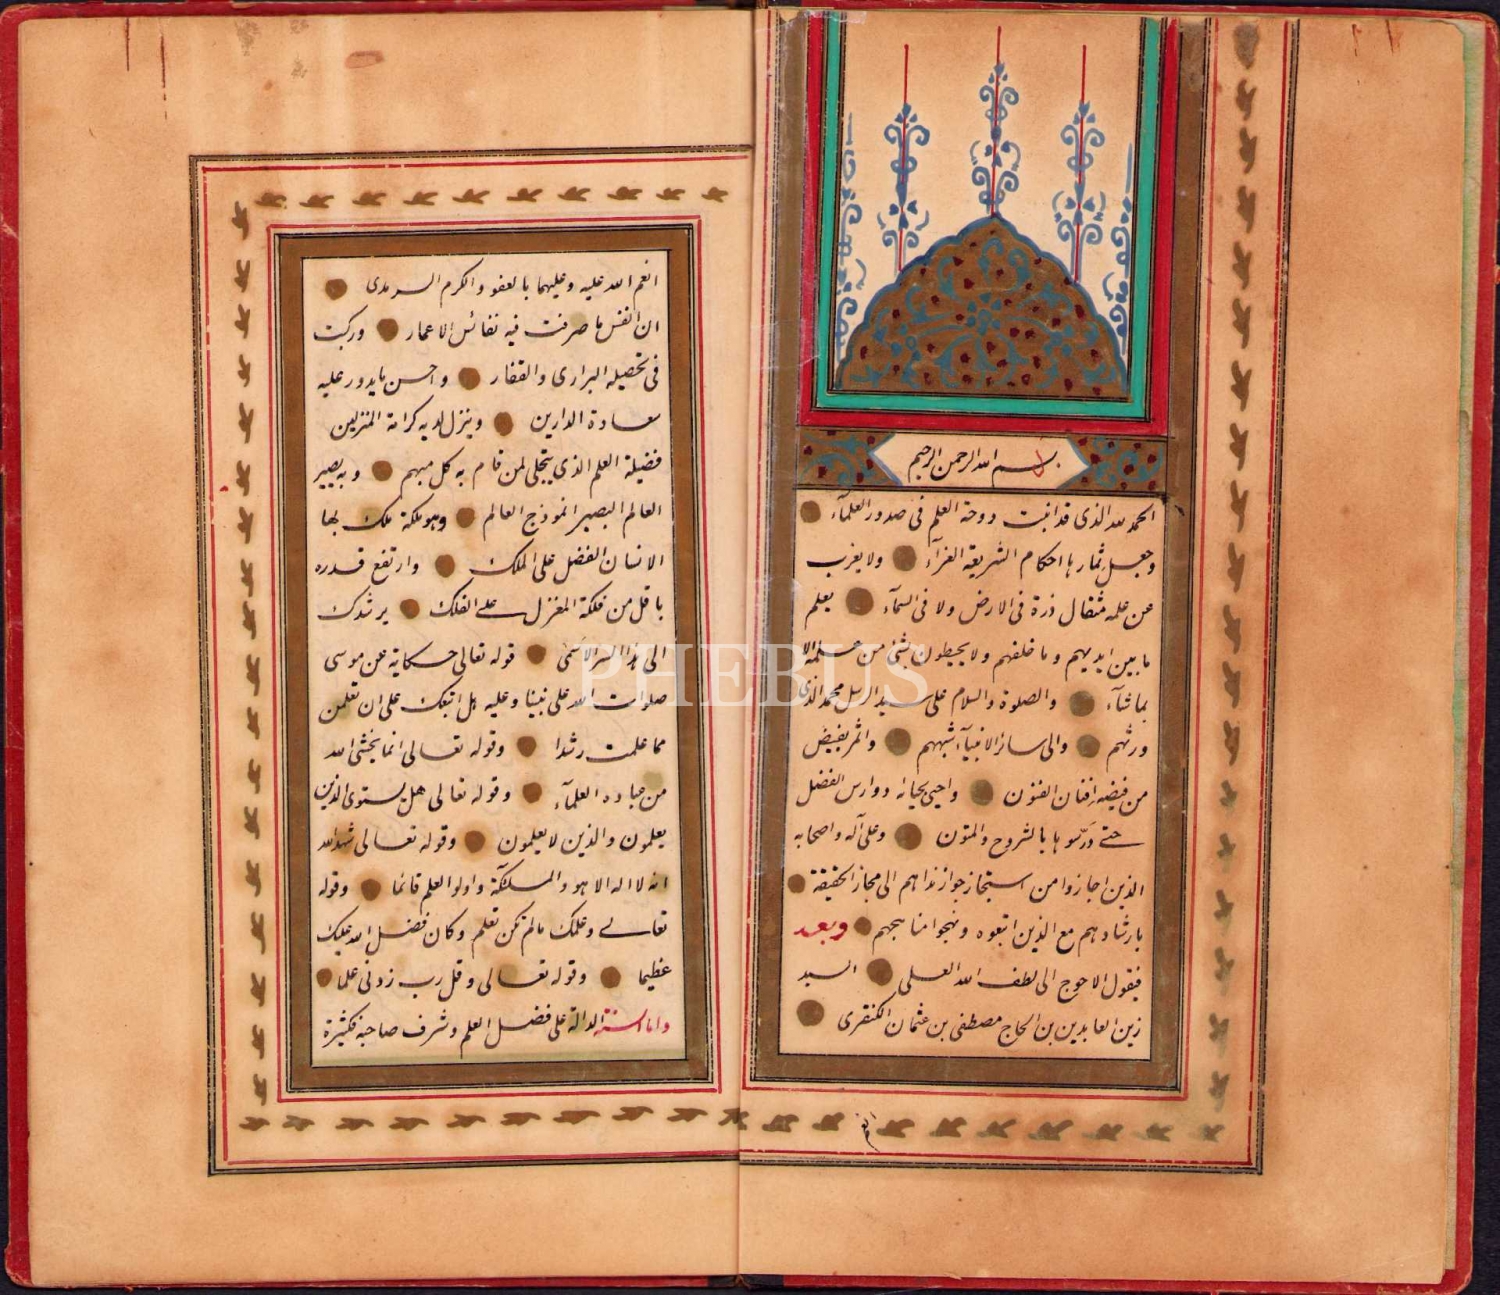 بسم الله الرحمن الرحيم
الحمد لله الذى قد انبت دوحة العلم فى صدور العلمآء
وجعل ثمارها احكام الشريعة الغرآء ولا يعزب
عن علمه مثقال ذرة فى الارض ولا فى السمآء يعلم
ما بين ايديهم وما خلفهم ولا يحيطون بشئ من علمه الا
بما شآء والصلوة والسلام على سيد الرسل محمد الذى
ورثهم والى سائر الانبيآء اشبههم واثمر بفيض
من فيضه افنان الفنون واحيى دوارس الفضل
حتى درسوها بالشروح والمتون وعلى آله واصحابه
الذين اجازوا من استجاز جوازنداهم الى مجاز الحقيقة
بارشادهم مع الذين اتبعوه ونهجوا مناهجهم وبعد
فيقول الاحوج الى لطف الله العلى السيد
زين العابدين بن الحاج مصطفى بن عثمان الكنقرى
انعم
انعم الله عليه وعليهما بالعفو والكرم السرمدى
ان انفس ما صرفت فيه نفائس الاعمار وركبت
فى تحصيله البرارى والقفار واحسن ما يدور عليه
سعادة الدارين وينزل لديه كرامة المنزلين
فضيلة العلم الذى يتجلى لمن قام به كل مبهم وبه يصير
العالم البصير انموذج العالم وهو ملكة ملك بها
الانسان الفضل على الملك وارتفع قدره
باقل من فلكة المغزل على الفلك يرشدك
الى هذا السر الاسمى قوله تعالى حكاية عن موسى
صلوات الله على نبينا وعليه هل اتبعك على ان تعلمن
مما علمت رشدا وقوله تعالى انما يخشى الله
من عباده العلمآء وقوله تعالى هل يستوى الذين
يعلمون والذين لا يعلمون وقوله تعالى شهد الله
انه لا اله الا هو والملئكة واولوا العلم قائما وقوله
تعالى وعلمك مالم تكن تعلم وكان فضل الله عليك
عظيما وقوله تعالى وقل رب زدنى علما
واما السنة الدالة على فضل العلم وشرف صاحبه فكثيرة
PHEBUS